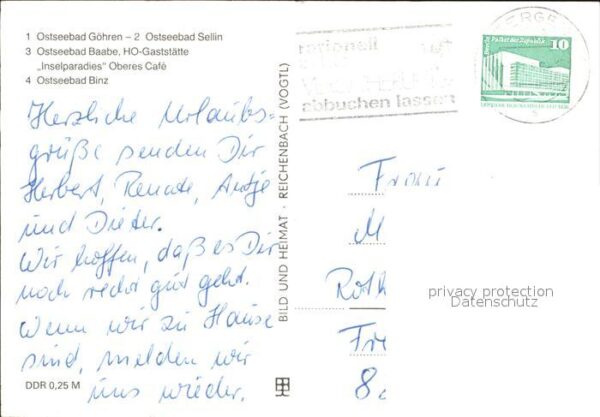 1 Ostseebad Göhren – 2 Ostseebad Sellin
3 Ostseebad Baabe, HO-Gaststätte
„Inselparadies" Oberes Café
4 Ostseebad Binz
Herzliche Urlaubs-
grüße senden Dir
Herbert, Renate, Antje
und Dieter.
Wir hoffen, daß es Dir
noch recht gut geht.
Wenn wir zu Hause
sind, melden wir
uns wieder.
DDR 0,25 M
BILD UND HEIMAT · REICHENBACH (VOGTL)
rationell
abbuchen lassen
BERGEN
Berlin, Palast der Republik
10
Frau
M
Roth
Fri
8
privacy protection
Datenschutz